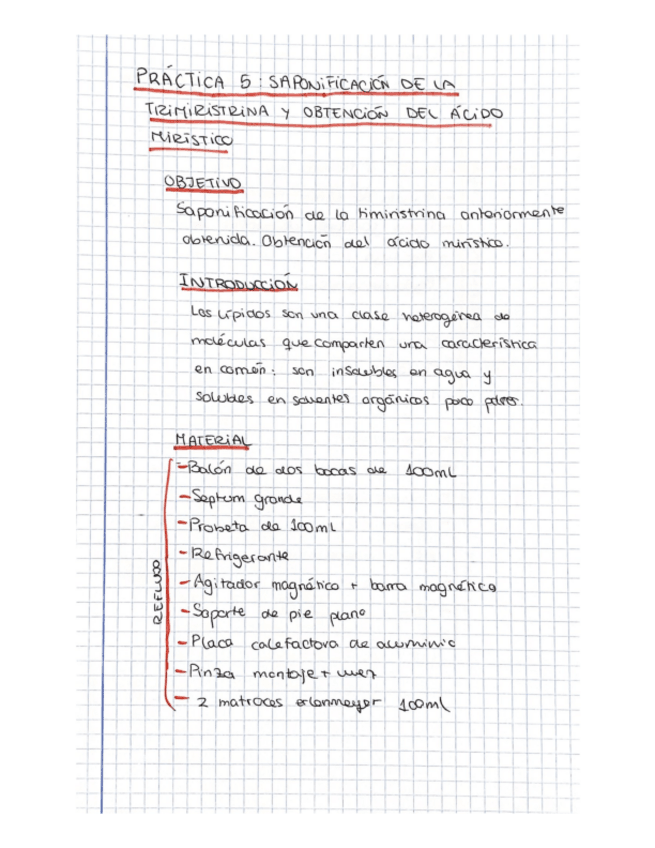 PRÁCTICA 5: SAPONIFICACIÓN DE LA
TRIMIRISTRINA Y OBTENCIÓN DEL ÁCIDO
MIRÍSTICO
OBJETIVO
Saponificación de la timiristrina anteriormente
obtenida. Obtención del ácido mirístico.
INTRODUCCIÓN
Los lípidos son una clase heterogénea de
moléculas que comparten una característica
en común: son insolubles en agua y
solubles en solventes orgánicos poco polares.
MATERIAL
- Balón de dos bocas de 100mL
- Septum grande
- Probeta de 100mL
- Refrigerante
- Agitador magnético + barra magnética
- Soporte de pie plano
- Placa calefactora de aluminio
- Pinza montaje + nuez
- 2 matraces erlenmeyer 100ml
REFLUJO